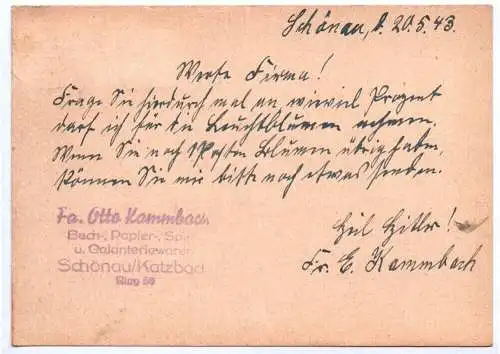 Schönau, d. 20.5.43.
Werte Firma!
Frage Sie hierdurch mal an wieviel Prozent
darf ich für die Leuchtblumen nehmen.
Wenn Sie noch Posten Blumen übrig haben,
können Sie mir bitte noch etwas senden.
Heil Hitler!
Fr. E. Kammbach
Fa. Otto Kammbach
Buch-, Papier-, Spiel-
u. Galanteriewaren
Schönau/Katzbach
Ring 56